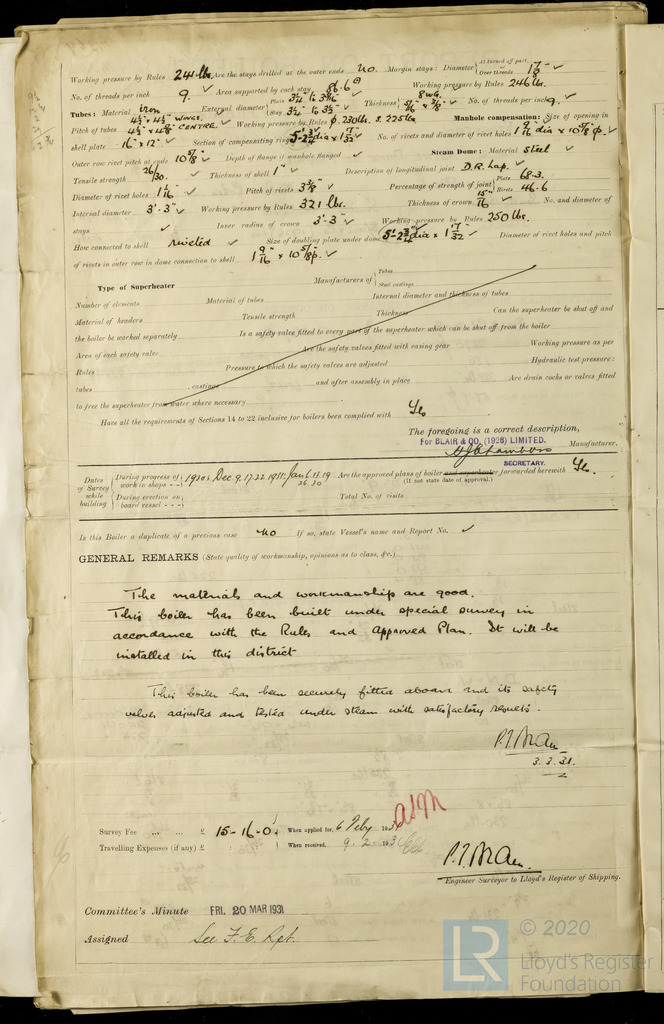 Working pressure by Rules 244 lbs Are the stays drilled at the outer ends No. Margin stays: Diameter { At turned off part, Over threads 1 7/8" ✓
No. of threads per inch 9. ✓ Area supported by each stay Working pressure by Rules 246 lbs
Tubes: Material iron External diameter { Plain 3¼" Stay 3¼" Thickness { 8WG. No. of threads per inch 9. ✓
Pitch of tubes WINGS. CENTRE ✓ Working pressure by Rules 230 lbs. S. 225 lbs Manhole compensation: Size of opening in
shell plate 16" × 12" ✓ Section of compensating ring No. of rivets and diameter of rivet holes
Outer row rivet pitch at ends 10 5/8" ✓ Depth of flange if manhole flanged ✓ Steam Dome: Material steel ✓
Tensile strength 26/30. ✓ Thickness of shell 1" ✓ Description of longitudinal joint D.R. Lap. ✓
Diameter of rivet holes 1 1/16" ✓ Pitch of rivets 3 3/8" ✓ Percentage of strength of joint { Plate 68.3. Rivets 46.6
Internal diameter 3'-3" ✓ Working pressure by Rules 321 lbs. Thickness of crown 15/16" ✓ No. and diameter of
stays ✓ Inner radius of crown 3'-3" ✓ Working pressure by Rules 250 lbs.
How connected to shell riveted ✓ Size of doubling plate under dome 5'-2¾" dia × 1 7/32" ✓ Diameter of rivet holes and pitch
of rivets in outer row in dome connection to shell 1 9/16" × 10 5/8" p. ✓
Type of Superheater Manufacturers of { Tubes Steel castings
Number of elements Material of tubes Internal diameter and thickness of tubes
Material of headers Tensile strength Thickness Can the superheater be shut off and
the boiler be worked separately Is a safety valve fitted to every part of the superheater which can be shut off from the boiler
Area of each safety valve Are the safety valves fitted with easing gear Working pressure as per
Rules Pressure to which the safety valves are adjusted Hydraulic test pressure:
tubes , castings and after assembly in place Are drain cocks or valves fitted
to free the superheater from water where necessary
Have all the requirements of Sections 14 to 22 inclusive for boilers been complied with Yes
The foregoing is a correct description,
For BLAIR & CO. (1926) LIMITED. Manufacturer.
SECRETARY.
Dates of Survey while building { During progress of work in shops - - } 1930: Dec 9. 17. 22 1931: Jan 6. 13. 19 26. 30 Are the approved plans of boiler and superheater forwarded herewith Yes.
(If not state date of approval.)
{ During erection on board vessel - - - } Total No. of visits
Is this Boiler a duplicate of a previous case No If so, state Vessel's name and Report No. ✓
GENERAL REMARKS (State quality of workmanship, opinions as to class, &c.)
The materials and workmanship are good.
This boiler has been built under special survey in
accordance with the Rules and Approved Plan. It will be
installed in this district
This boiler has been securely fitted aboard and its safety
valves adjusted and tested under steam with satisfactory results.
3. 3. 31.
Survey Fee ... ... £ 15-16-0 : When applied for, 6 Feby 193
Travelling Expenses (if any) £ : : When received, 9. 2. 193
Engineer Surveyor to Lloyd's Register of Shipping.
Committee's Minute FRI. 20 MAR 1931
Assigned See F. E. Rpt.
LR © 2020
Lloyd's Register
Foundation